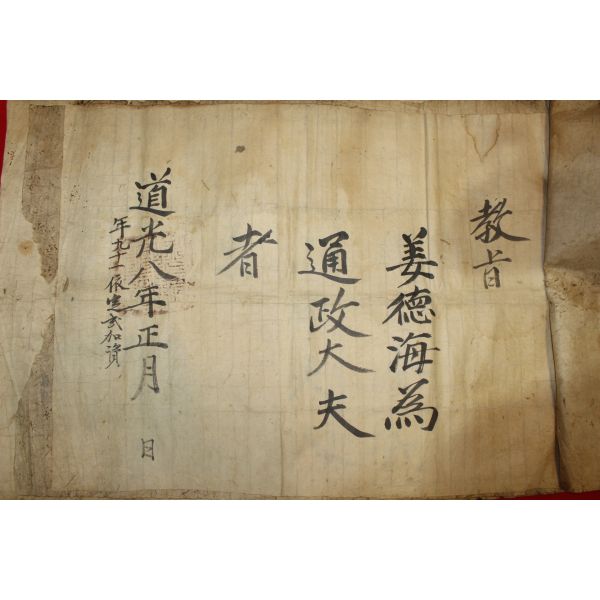 教旨
姜德海為
通政大夫
者
道光八年正月　日
年九十一依定式加資